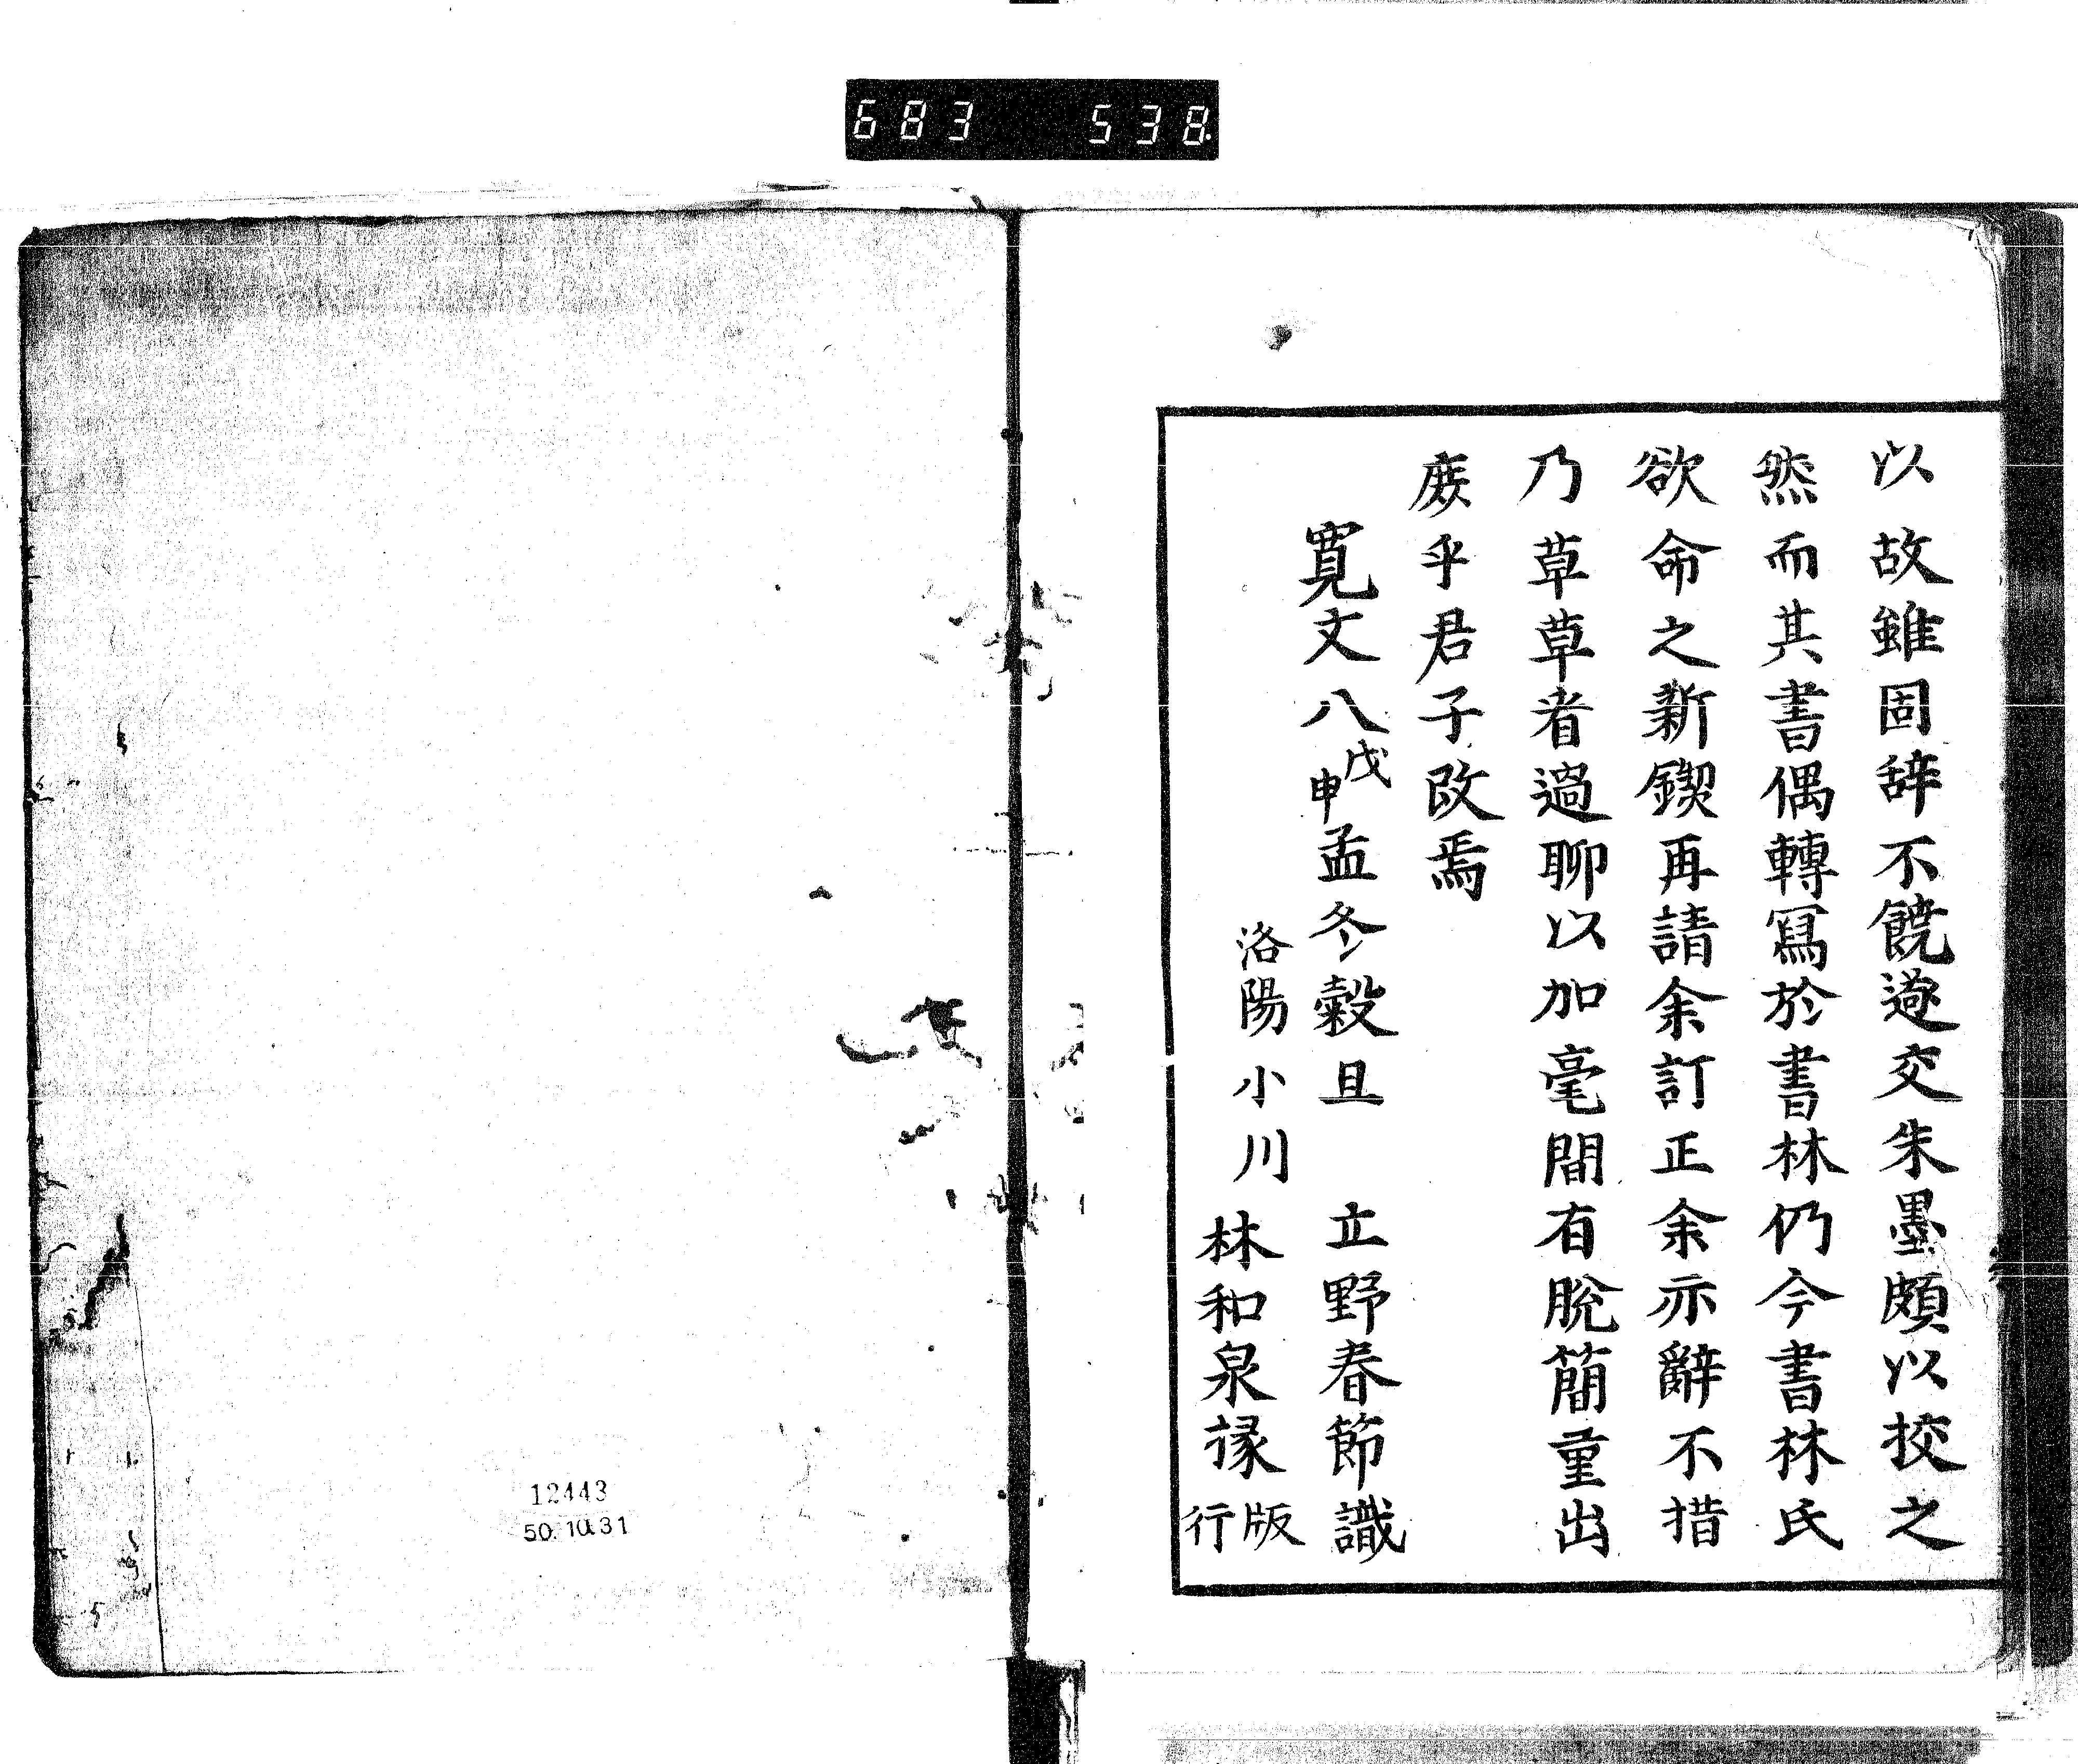 683 538
以故雖固辞不饒遂交朱墨頗以挍之
然而其書偶轉寫於書林仍今書林氏
欲命之新鍥再請余訂正余亦辭不措
乃草草者過聊以加毫間有脫簡重出
庶乎君子改焉
寛文八戊申孟冬穀旦 立野春節識
洛陽小川
林和泉掾
版行
12443
50.10.31